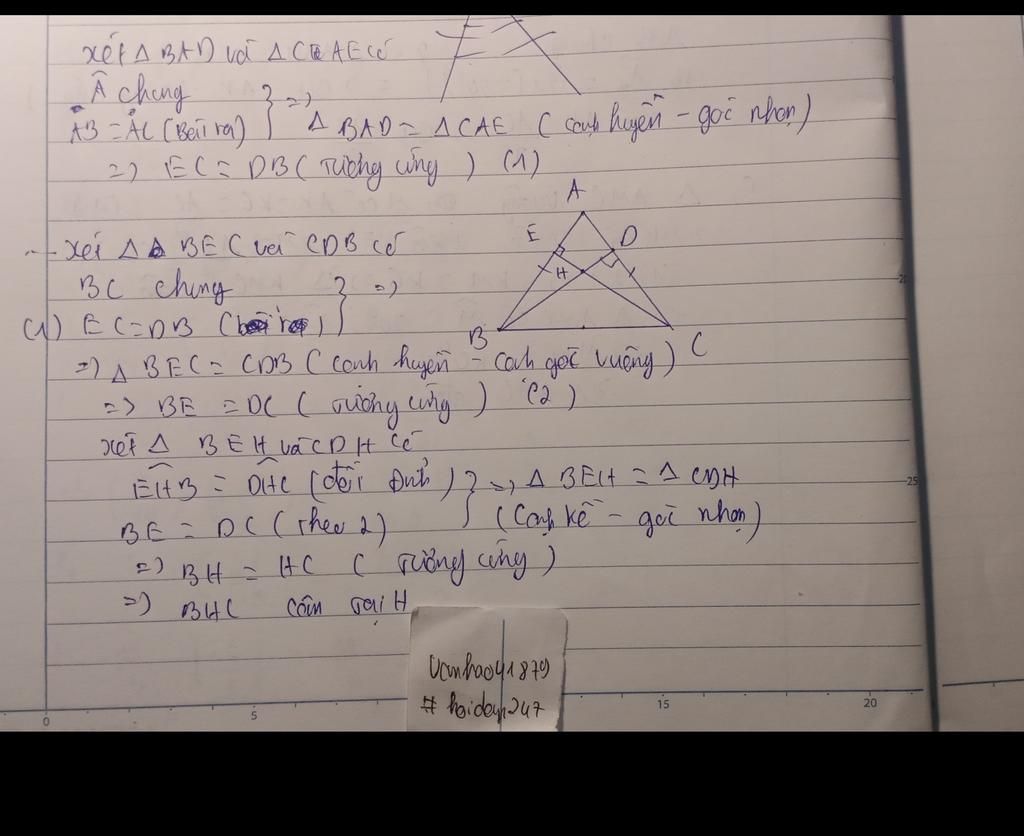 xét Δ BAD và Δ CAE có
Â chung
AB = AC (Bài ra) } => Δ BAD = Δ CAE (cạnh huyền - góc nhọn)
=> EC = DB (tương ứng) (1)
A
E D
H
B C
xét Δ BEC và CDB có
BC chung } =>
(1) EC = DB
=> Δ BEC = CDB (cạnh huyền - cạnh góc vuông)
=> BE = DC (tương ứng) (2)
xét Δ BEH và CDH có
EHB = DHC (đối đỉnh) } => Δ BEH = Δ CDH
BE = DC (theo 2) (cạnh kề - góc nhọn)
=> BH = HC (tương ứng)
=> BHC cân tại H
Vanhao41879
# hoidap247
0 5 15 20
25